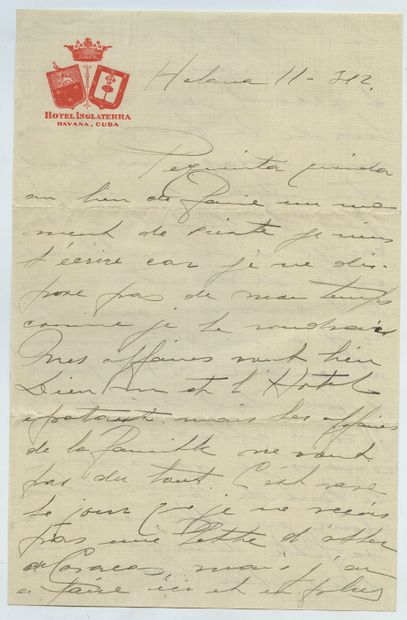 HOTEL INGLATERRA
HAVANA, CUBA
Habana 11-
Pequinta
au lieu de faire un mo
ment de sieste je viens
t'écrire car je ne dis
pose pas de mon temps
comme je le voudrais
Mes affaires vont bien
Dien et l'Hotel
mais les affaires
de la famille ne vont
pas du tout. C'est rare
le jour que je ne reçois
pas une lettre d'
Caracas, mais j'ai
a faire ici et en plus